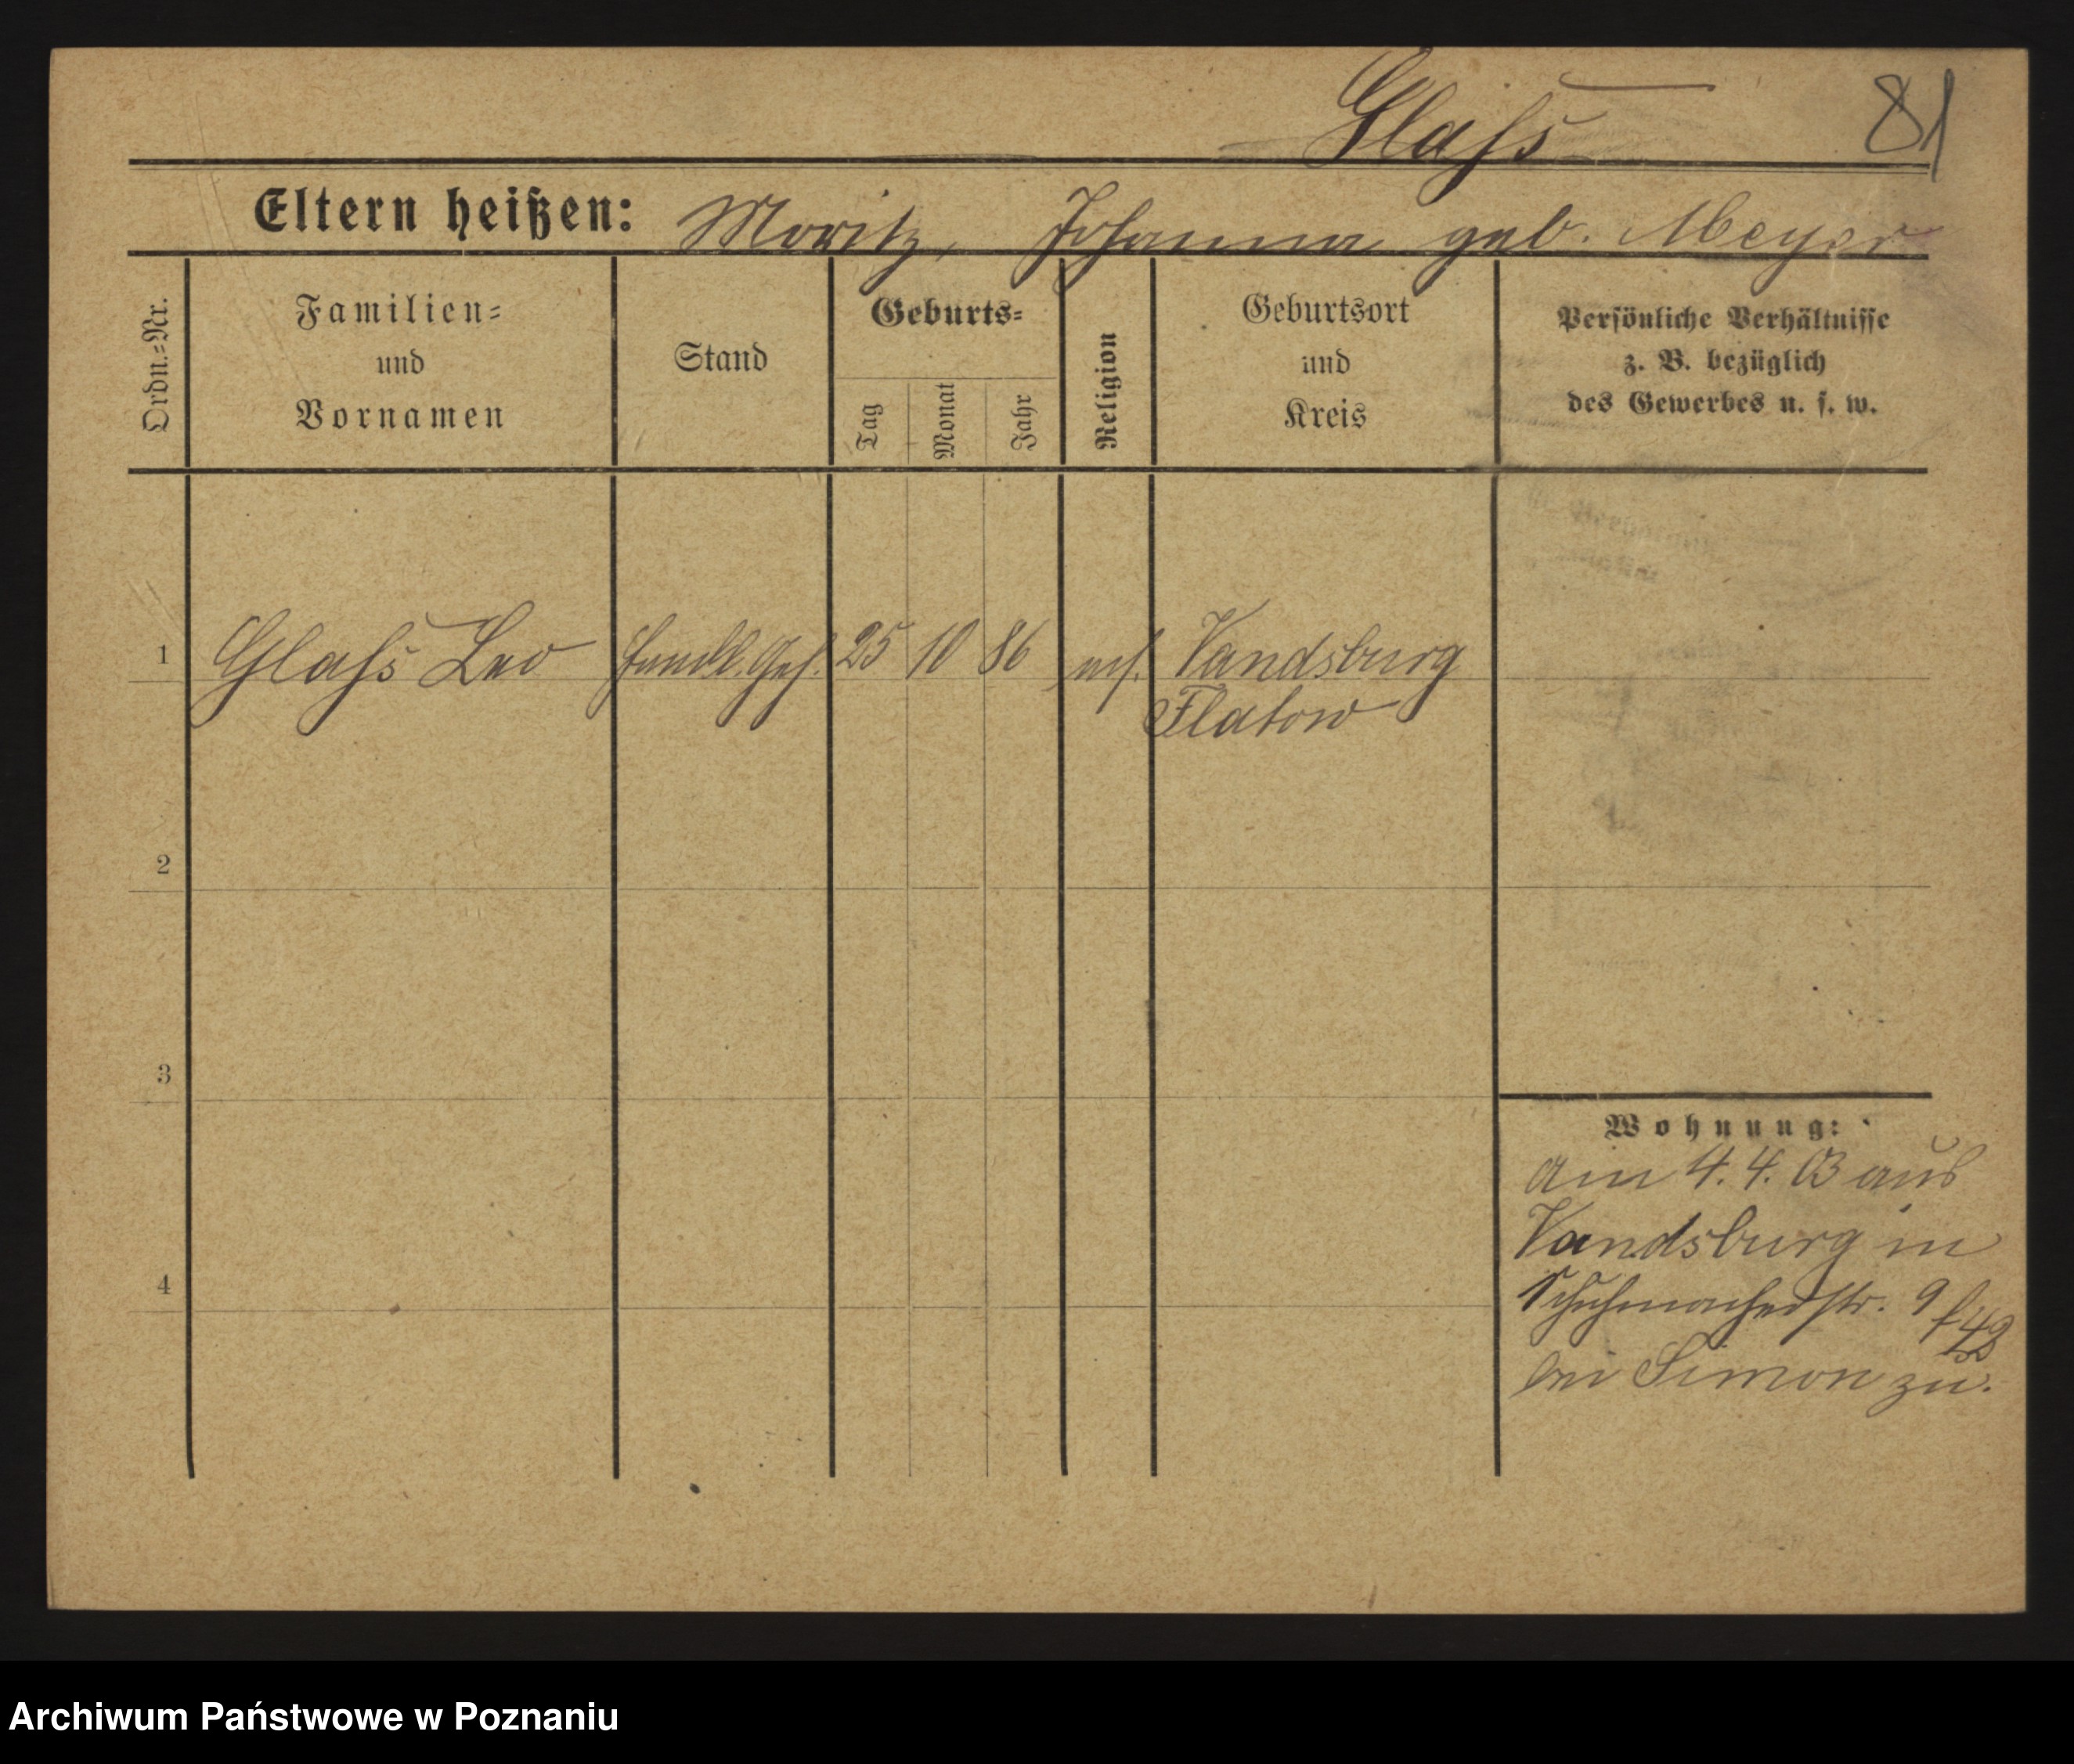 Glaſs 81
Eltern heißen: Moritz, Johanna geb. Meyer
Ordn.=Nr.
Familien=
und
Vornamen
Stand
Geburts=
Tag
Monat
Jahr
Religion
Geburtsort
und
Kreis
Persönliche Verhältnisse
z. B. bezüglich
des Gewerbes u. s. w.
1 Glaſs Leo Handl. Geh. 25 10 86 mos. Vandsburg
Flatow
2
3
4
Wohnung:
am 4. 4. 03 aus
Vandsburg in
Schuhmacherstr. 9
bei Simon zu.
Archiwum Państwowe w Poznaniu